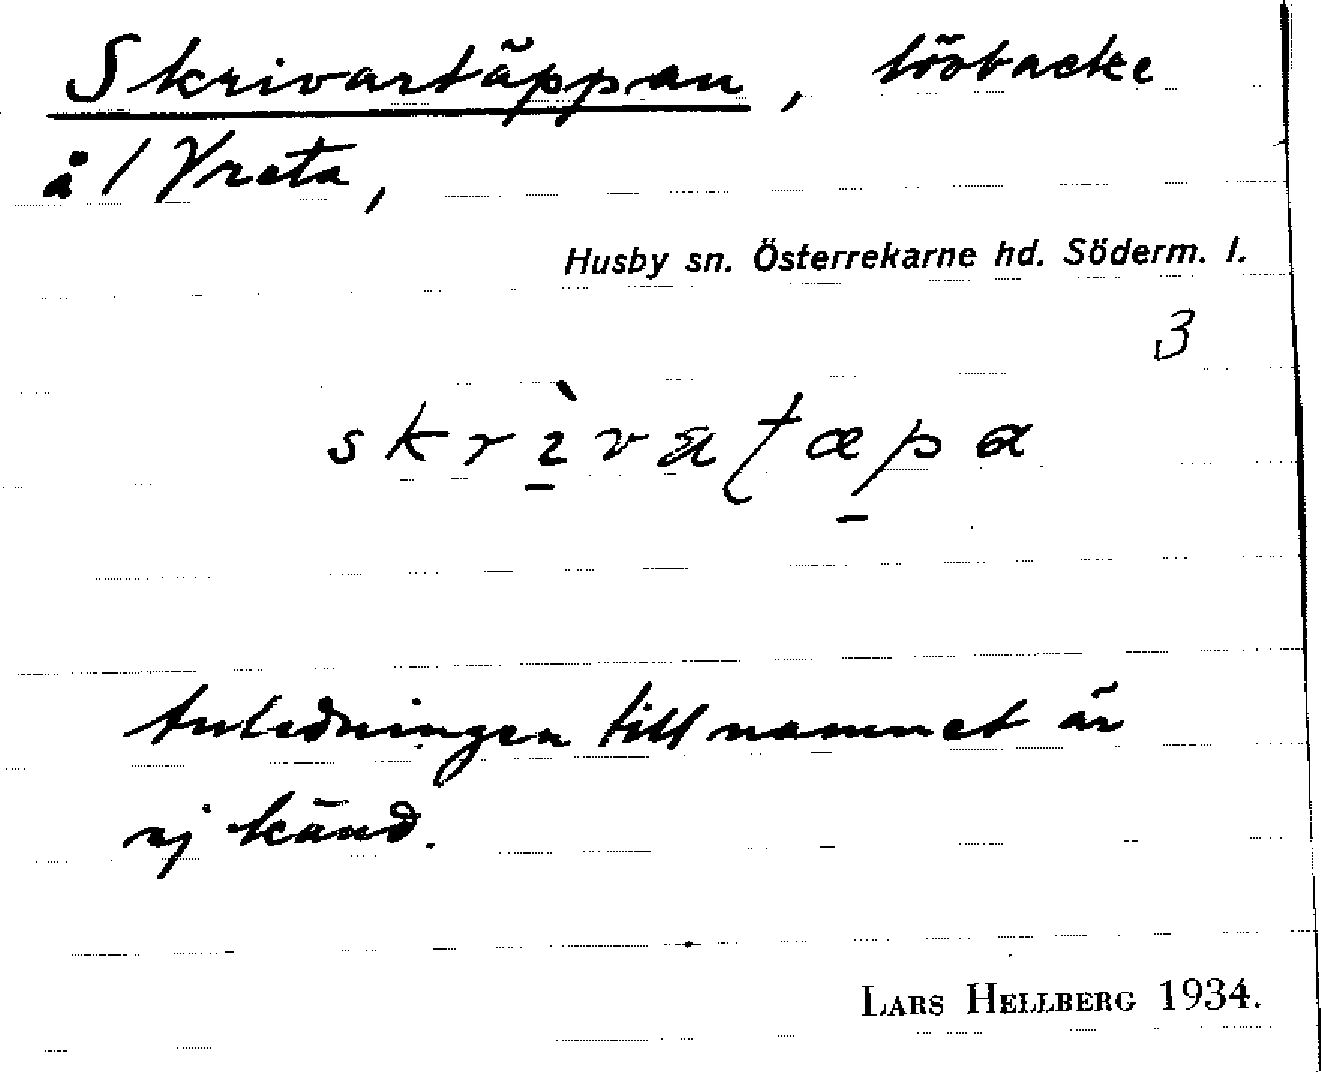 Skrivartäppan, lövbacke
å / Vreta,
Husby sn. Österrekarne hd. Söderm. l.
3
skrìvaʈæpa
Anledningen till namnet är
ej känd.
LARS HELLBERG 1934.